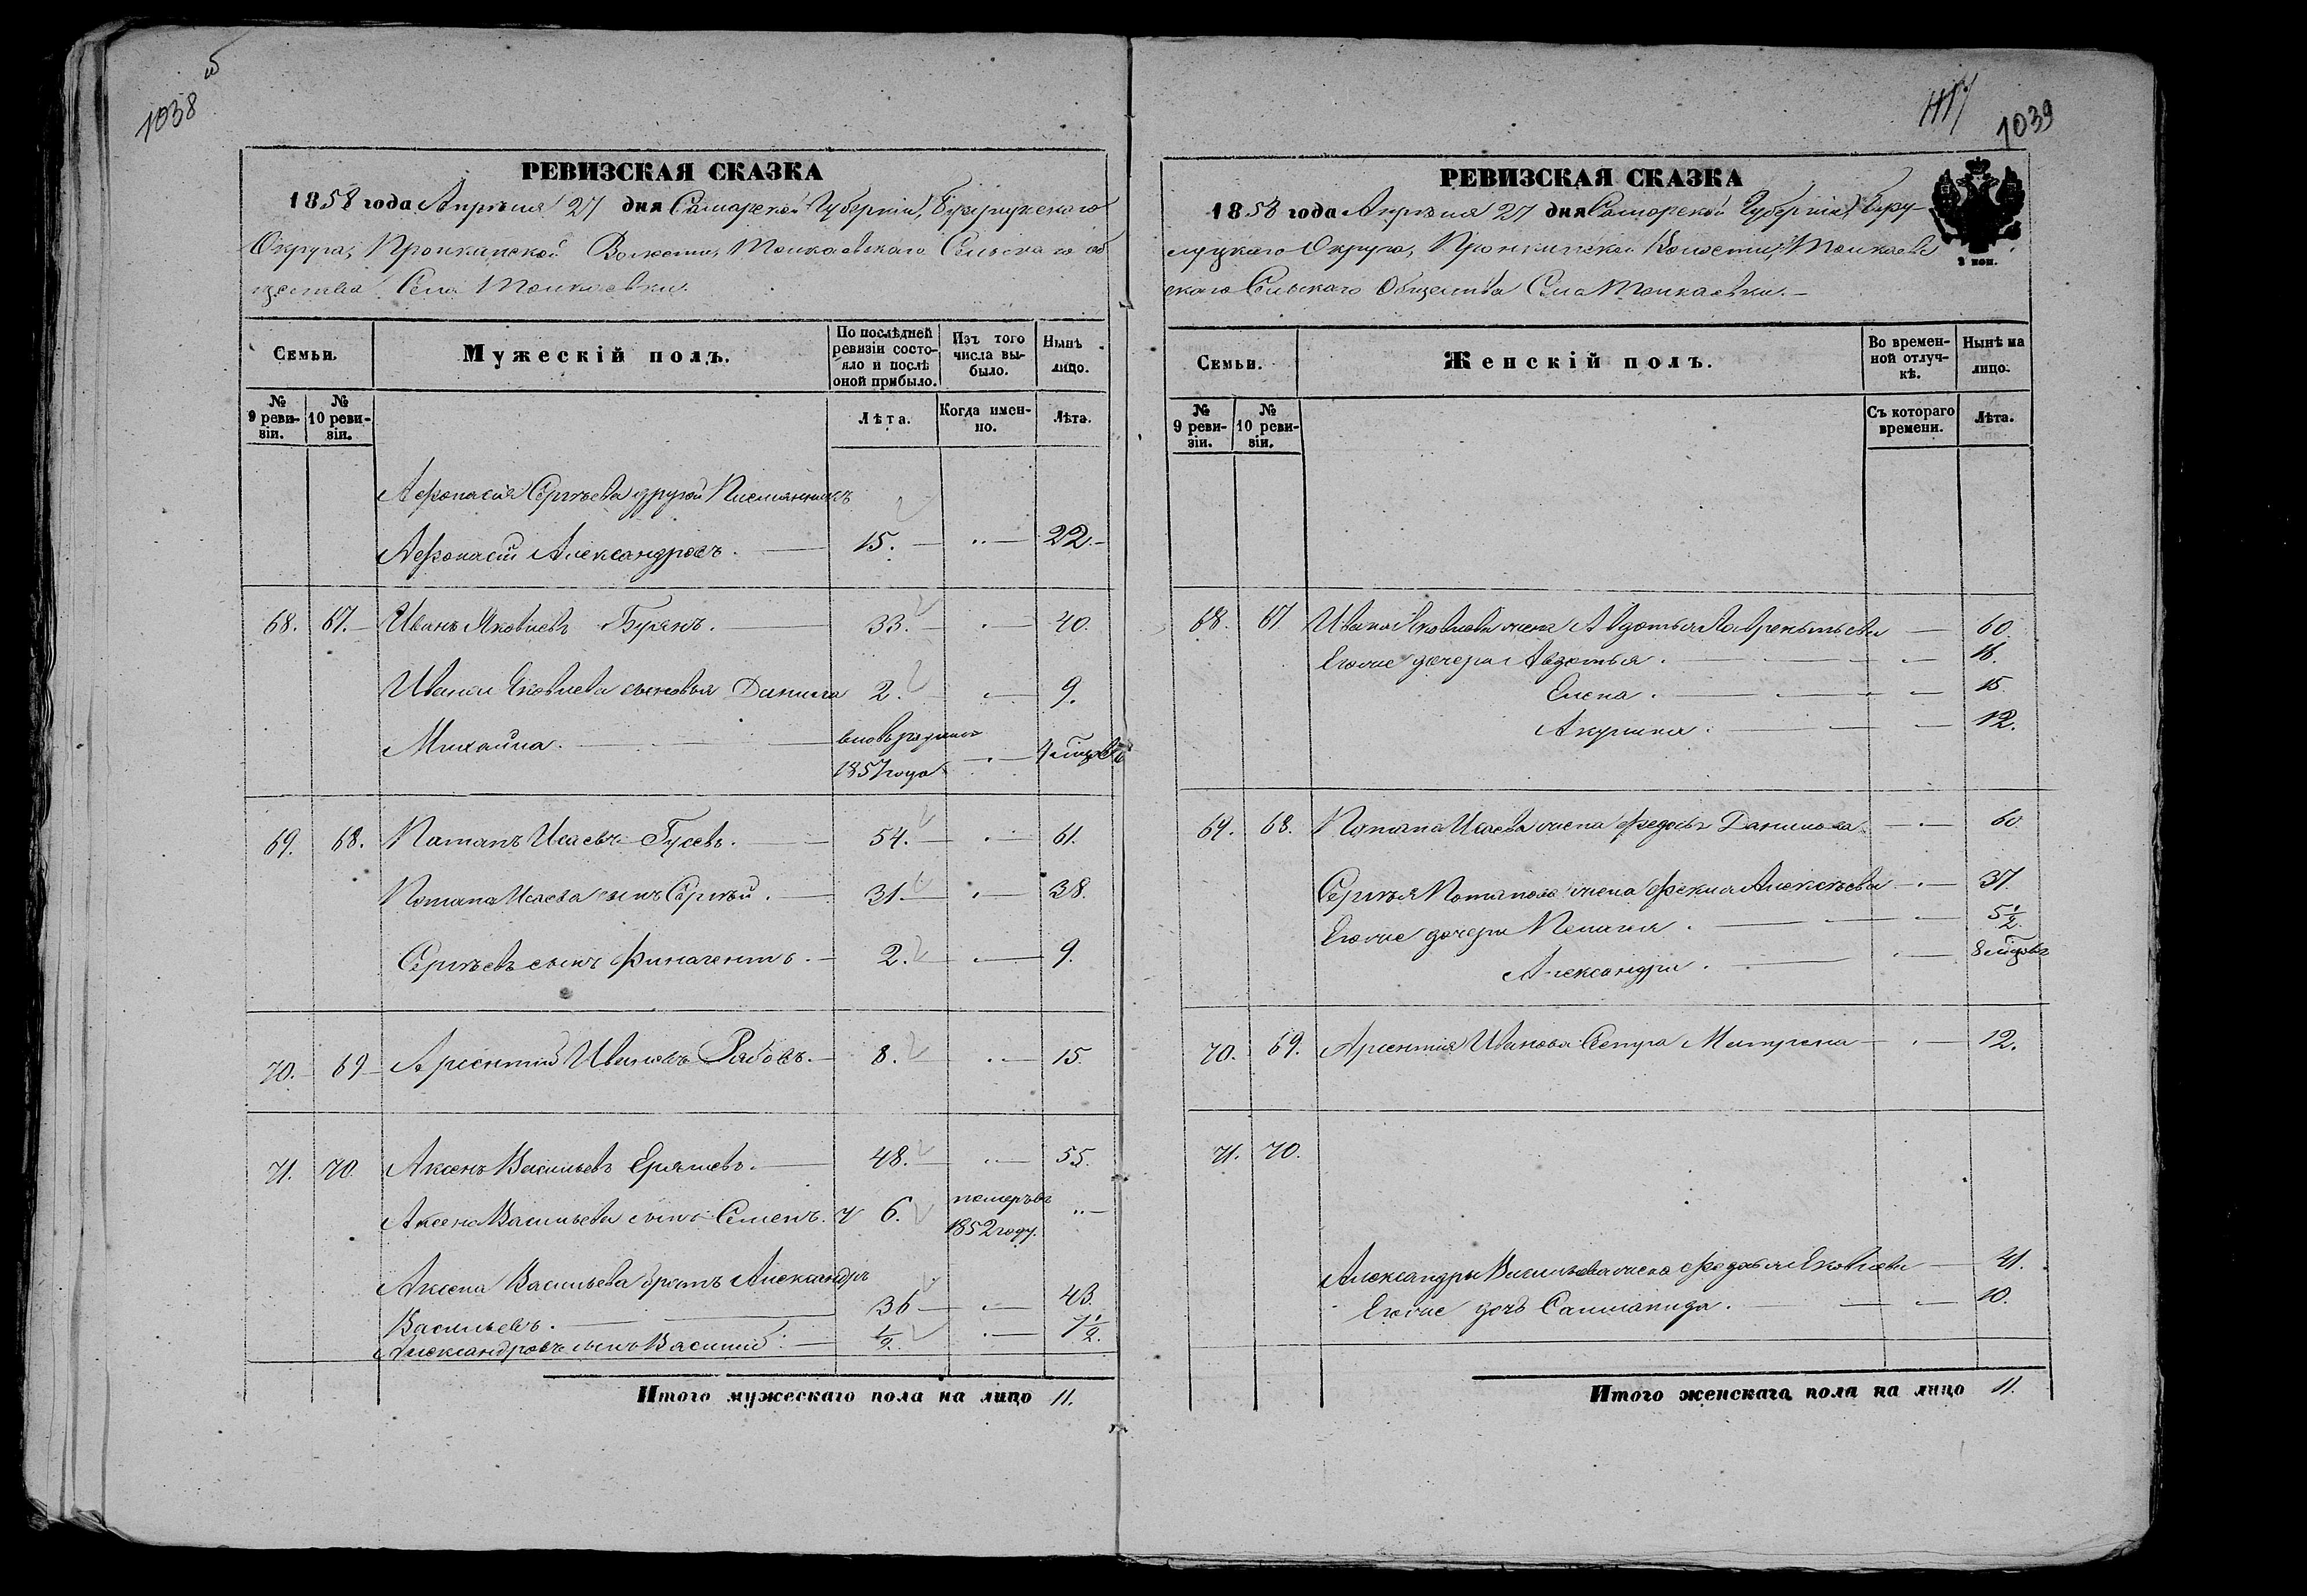 1038
РЕВИЗСКАЯ СКАЗКА
1858 года Апрѣля 27 дня Самарской Губерніи, Бузулукскаго
Округа, Пронькинской Волости, Толкаевскаго Сельскаго об
щества Села Толкаевки.
Семьи.
Мужескій полъ.
По послѣдней ревизіи состояло и послѣ оной прибыло.
Изъ того числа выбыло.
Нынѣ лицо.
№ 9 ревизіи.
№ 10 ревизіи.
Лѣта.
Когда именно.
Лѣта.
Афонасія Сергѣева другой Племянникъ
Афонасій Александровъ. 15. 22.
68. 67. Иванъ Яковлевъ 33. 40.
Ивана Яковлева сыновья Данила 2. 9.
Михайла. вновь рожденъ
1857 года
69. 68. Потапъ Исаевъ Гусевъ. 54. 61.
Потапа Исаева сынъ Сергѣй. 31. 38.
Сергѣевъ сынъ 2. 9.
70. 69 Арсентій Ивановъ Рабовъ. 8. 15
71. 70. Аксенъ Васильевъ 48. 55.
Аксена Васильева сынъ Семенъ. 6. померъ въ
1852 году.
Аксена Васильева братъ Александръ
Васильевъ. 36 43.
Александровъ сынъ Василій. 1/2. 7 1/2.
Итого мужескаго пола на лицо 11.
1039
РЕВИЗСКАЯ СКАЗКА
1858 года Апрѣля 27 дня Самарской Губерніи, Бузу-
луцкаго Округа, Пронькинской Волости, Толкаев
скаго Сельскаго Общества Села Толкаевки.
3 коп.
Семьи.
Женскій полъ.
Во временной отлучкѣ.
Нынѣ на лицо.
№ 9 ревизіи.
№ 10 ревизіи.
Съ котораго времени.
Лѣта.
68. 67 Ивана Яковлева жена Авдотья Лаврентьева 60.
Егоже дочери Авдотья. 18.
Елена. 15.
Акулина. 12.
69. 68. Потапа Исаева жена Федосья Данилова 60.
Сергѣя Потапова жена Фекла Алексѣева 37.
Егоже дочери Пелагея. 5 1/2.
Александра. 8 мѣсяцовъ
70. 69. Арсентія Иванова Сестра Матрена 12.
71. 70.
Александры Васильева жена Федосья Яковлева 41.
Егоже дочь 10.
Итого женскаго пола на лицо 11.